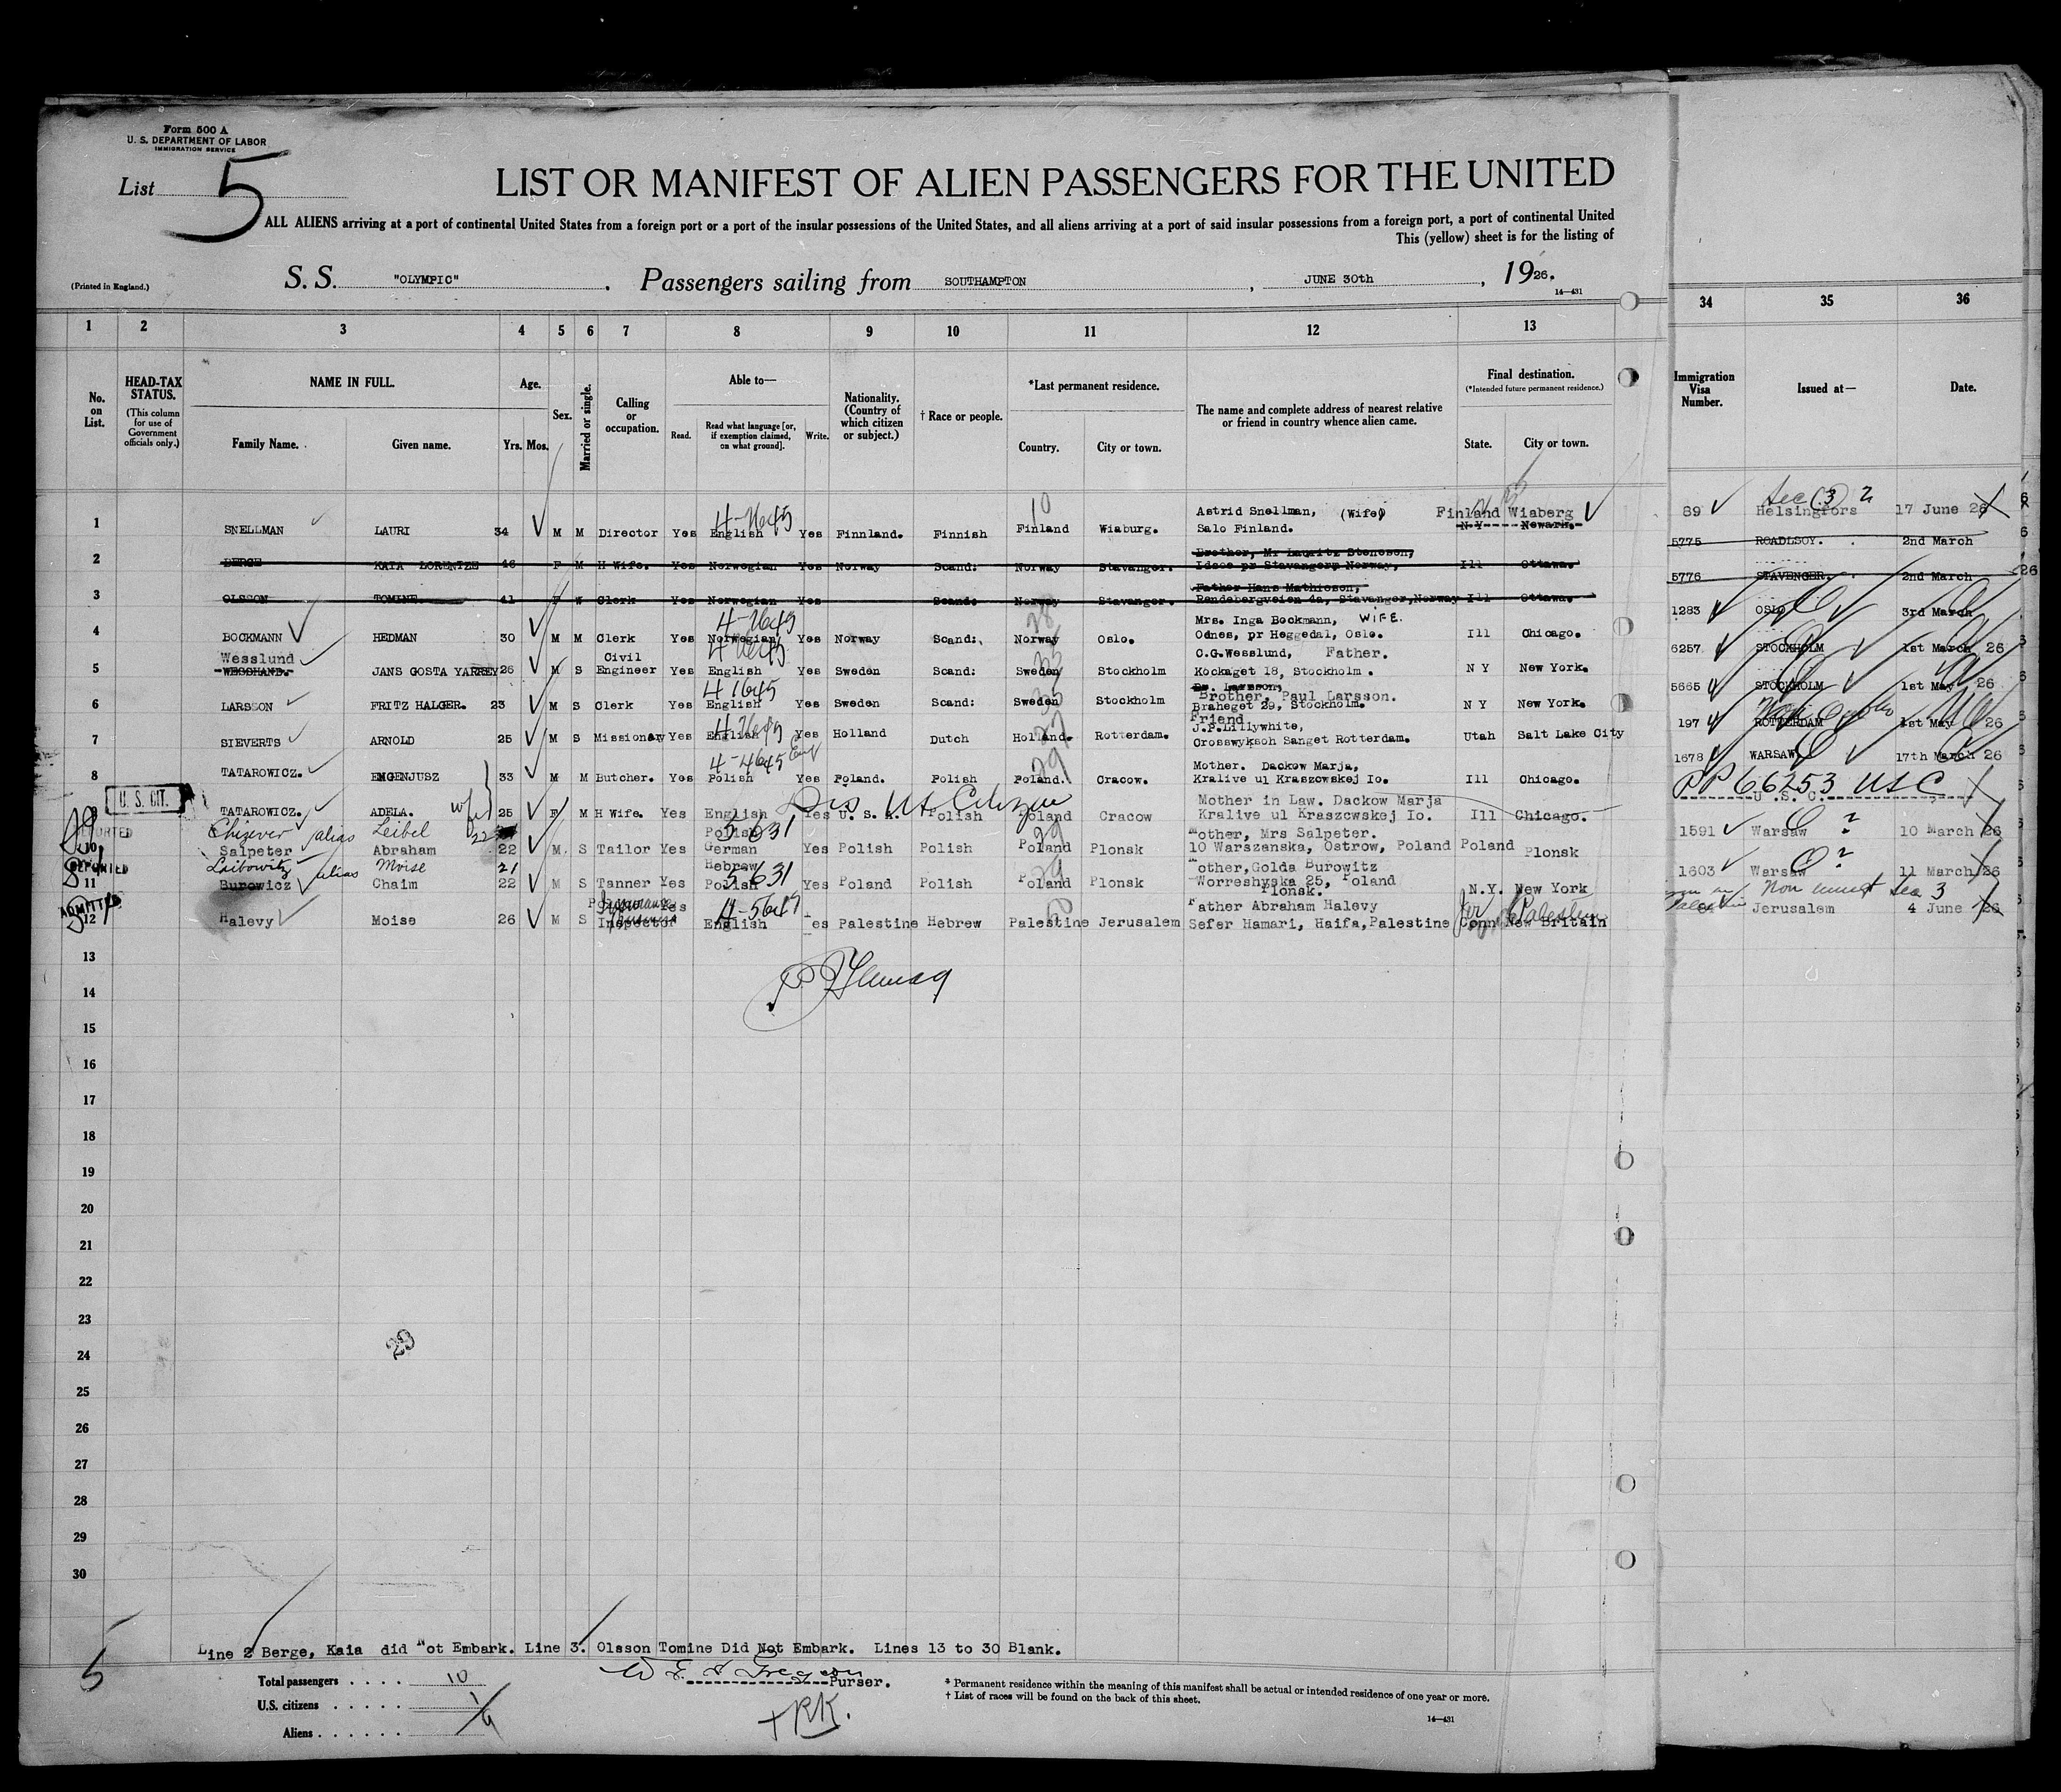 Form 500 A
U. S. DEPARTMENT OF LABOR
IMMIGRATION SERVICE
List 5
LIST OR MANIFEST OF ALIEN PASSENGERS FOR THE UNITED
ALL ALIENS arriving at a port of continental United States from a foreign port or a port of the insular possessions of the United States, and all aliens arriving at a port of said insular possessions from a foreign port, a port of continental United
This (yellow) sheet is for the listing of
(Printed in England.)
S. S. "OLYMPIC". Passengers sailing from SOUTHAMPTON, JUNE 30th, 1926.
14—431
1 2 3 4 5 6 7 8 9 10 11 12 13 34 35 36
No. on List.
HEAD-TAX STATUS. (This column for use of Government officials only.)
NAME IN FULL.
Family Name. Given name.
Age. Yrs. Mos.
Sex.
Married or single.
Calling or occupation.
Able to—
Read. Read what language [or, if exemption claimed, on what ground]. Write.
Nationality. (Country of which citizen or subject.)
† Race or people.
*Last permanent residence.
Country. City or town.
The name and complete address of nearest relative or friend in country whence alien came.
Final destination. (*Intended future permanent residence.)
State. City or town.
Immigration Visa Number.
Issued at—
Date.
1 SNELLMAN LAURI 34 M M Director Yes English Yes Finnland. Finnish Finland Wiaburg. Astrid Snellman, (Wife) Salo Finland. Finland Wiaberg N Y Newark. 89 Sec (3) 2 Helsingfors 17 June 26
2 BERGE KATA LORENTZE 46 F M H Wife. Yes Norwegian Yes Norway Scand: Norway Stavanger. Brother, Mr Lauritz Stenesen, Idsoe pr Stavangerp Norway, Ill Ottawa. 5775 ROADLSOY. 2nd March
3 OLSSON TOMINE 41 F W Clerk Yes Norwegian Yes Scand: Norway Stavanger. Father Hans Mathiesen, Rendebergveien 4a, Stavanger, Norway Ill Ottawa. 5776 STAVENGER. 2nd March 26
4 BOCKMANN HEDMAN 30 M M Clerk Yes Norwegian Yes Norway Scand: Norway Oslo. Mrs. Inga Bockmann, WIFE. Odnes, pr Heggedal, Oslo. Ill Chicago. 1283 OSLO 3rd March
5 Wesslund WESSHAND. JANS GOSTA YARREY 26 M S Civil Engineer Yes English Yes Sweden Scand: Sweden Stockholm C.G.Wesslund, Father. Kockaget 18, Stockholm. N Y New York. 6257 STOCKHOLM 1st March 26
6 LARSSON FRITZ HALGER. 23 M S Clerk Yes English Yes Sweden Scand: Sweden Stockholm Dr. Larsson, Brother, Paul Larsson. Braheget 29, Stockholm. N Y New York. 5665 STOCKHOLM 1st May 26
7 SIEVERTS ARNOLD 25 M S Missionary Yes English Yes Holland Dutch Holland. Rotterdam. Friend J.P.Lillywhite, Crosswyksoh Sanget Rotterdam. Utah Salt Lake City 197 ROTTERDAM 1st May 26
8 TATAROWICZ. ENGENJUSZ 33 M M Butcher. Yes Polish Yes Poland. Polish Poland. Cracow. Mother. Dackow Marja, Kralive ul Kraszcwskej Io. Ill Chicago. 1678 WARSAW 17th March 26
U. S. CIT. TATAROWICZ. ADELA. wife 25 F M H Wife. Yes English Yes U. S. A. Polish Poland Cracow Mother in Law. Dackow Marja Kralive ul Kraszcwskej Io. Ill Chicago. PP 66253 USC U.S.C.
10 Chizever alias Leibel Salpeter Abraham 22 22 M. S Tailor Yes Polish German 5 631 Yes Polish Polish Poland Plonsk mother, Mrs Salpeter. 10 Warszanska, Ostrow, Poland Poland Plonsk 1591 Warsaw ? 10 March 26
DEPORTED
11 Leibowitz alias Moise Burowicz Chaim 21 22 M S Tanner Yes Hebrew Polish 5 631 Yes Poland Polish Poland Plonsk mother, Golda Burowitz Worreshyska 25, Poland Plonsk. N.Y. New York 1603 Warsaw ? 11 March 26
ADMITTED
12 Halevy Moise 26 M S Inspector Yes English 4-5645 Yes Palestine Hebrew Palestine Jerusalem Father Abraham Halevy Sefer Hamari, Haifa, Palestine Conn New Britain Palestine Non immgt Sec 3 Jerusalem 4 June 26
13
14
15
16
17
18
19
20
21
22
23
24
25
26
27
28
29
30
Line 2 Berge, Kaia did Not Embark. Line 3. Olsson Tomine Did Not Embark. Lines 13 to 30 Blank.
5
Total passengers . . . . 10
U.S. citizens . . . . . 1
Aliens . . . . . . 9
Purser.
* Permanent residence within the meaning of this manifest shall be actual or intended residence of one year or more.
† List of races will be found on the back of this sheet.
14—431